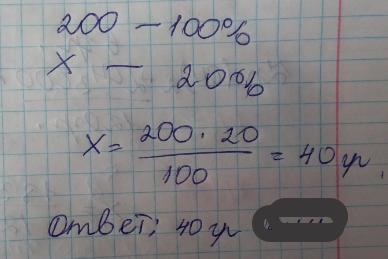 200 — 100%
X — 20%
X = 200 · 20 / 100 = 40 гр,
Ответ: 40 гр